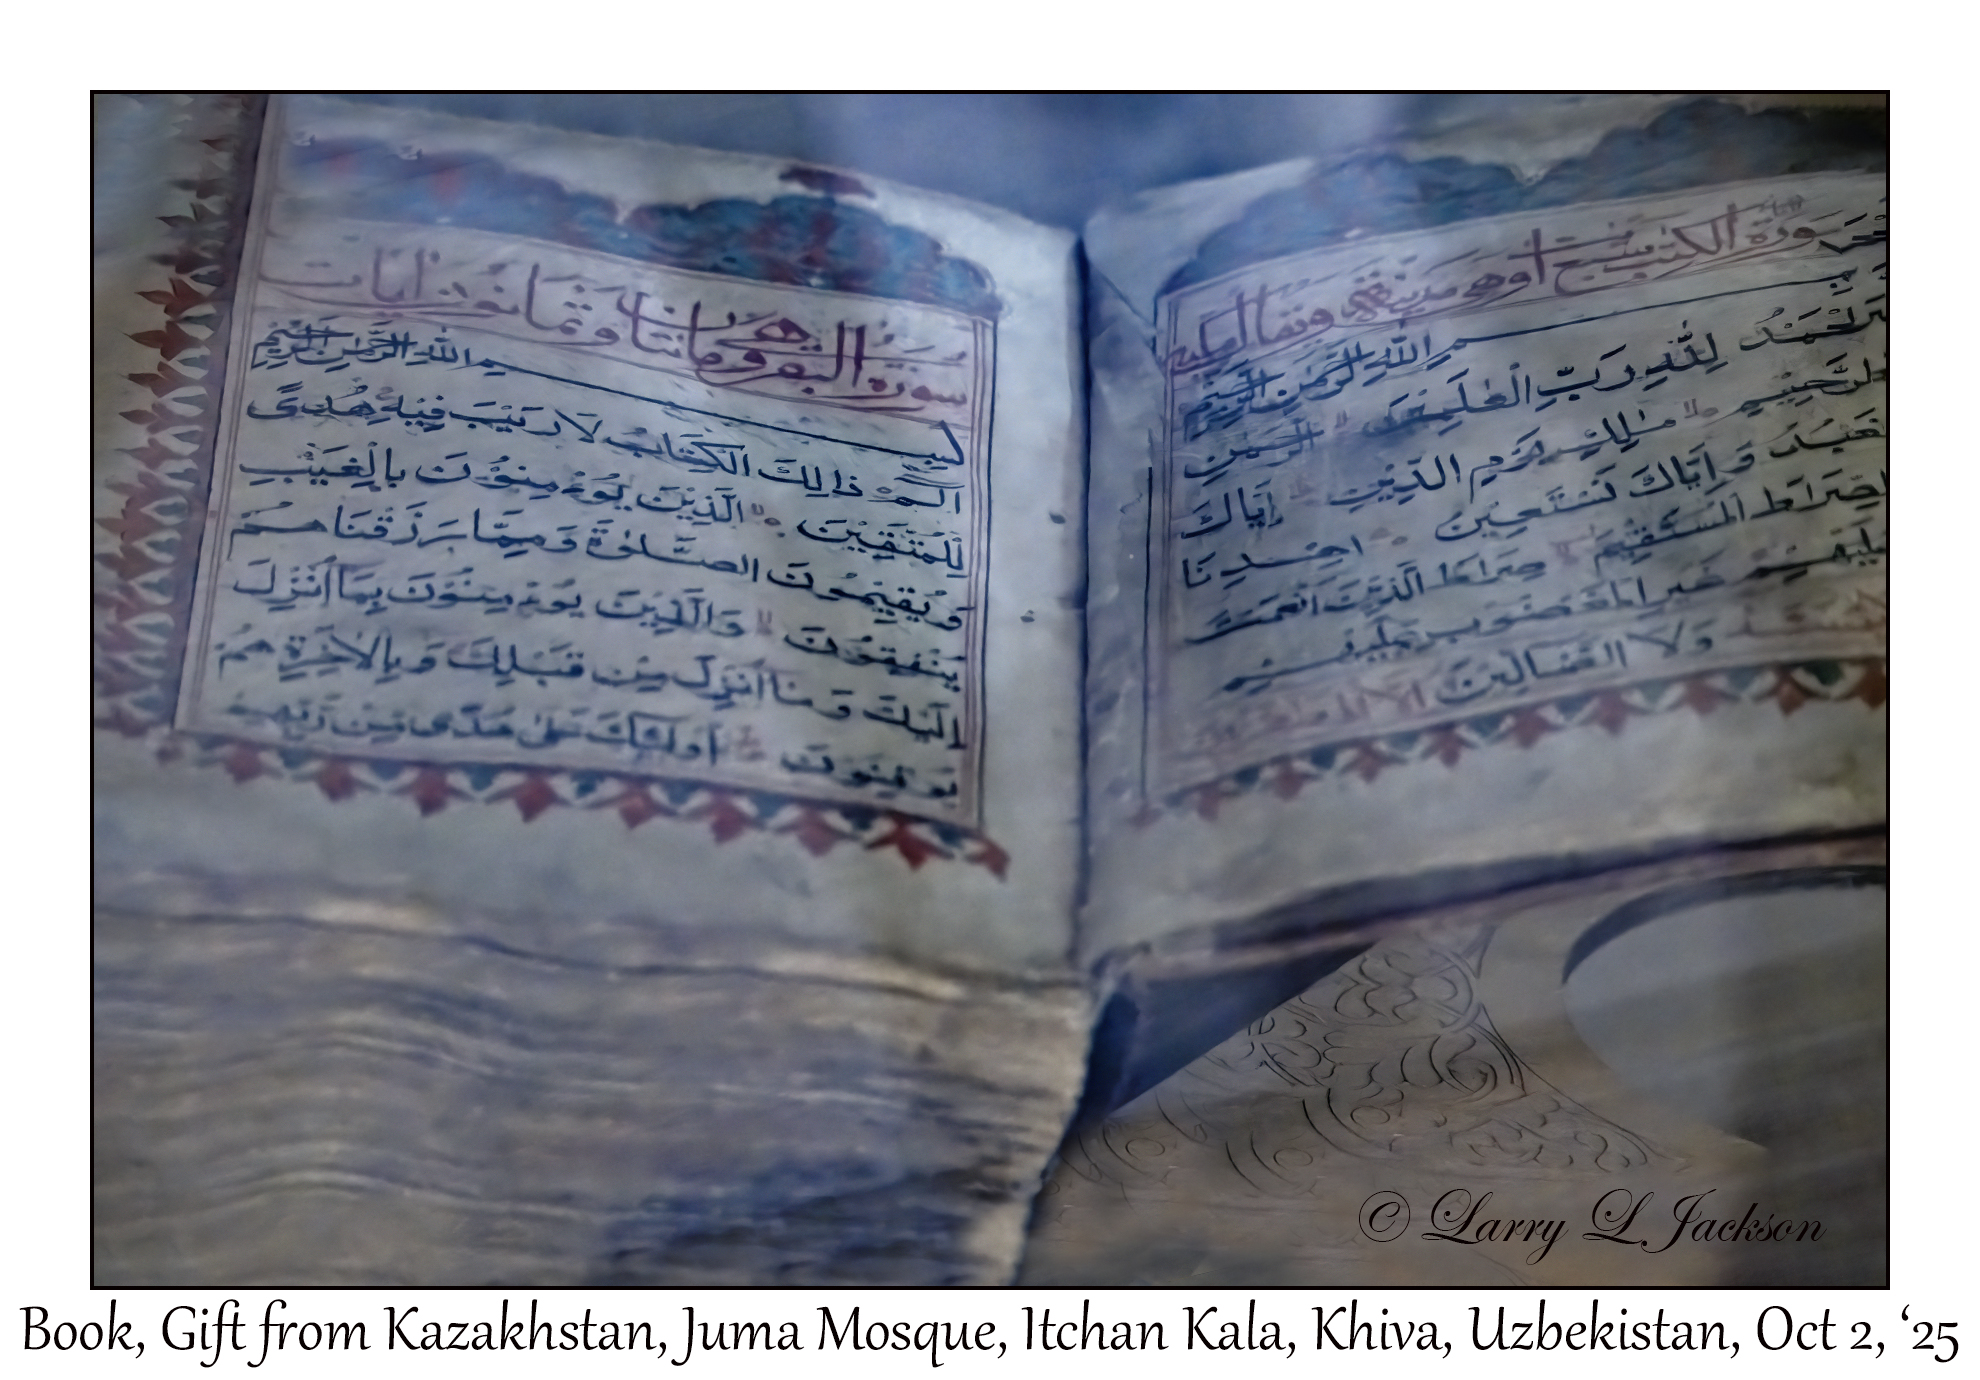 بسم الله الرحمن الرحيم
لله رب العلمين
الرحمن
ملك يوم الدين اياك
و اياك نستعين
اهدنا
المستقيم صراط الذين انعمت
غير المغضوب عليهم
ولا الضالين
سورة البقر
بسم الله الرحمن الرحيم
الم ذالك الكتاب لا ريب فيه هدى
للمتقين الذين يؤمنون بالغيب
و يقيمون الصلوة و مما رزقناهم
ينفقون والذين يؤمنون بما انزل
اليك وما انزل من قبلك وبالاخرة هم
يوقنون اولئك على هدى من ربهم
© Larry L Jackson
Book, Gift from Kazakhstan, Juma Mosque, Itchan Kala, Khiva, Uzbekistan, Oct 2, ‘25